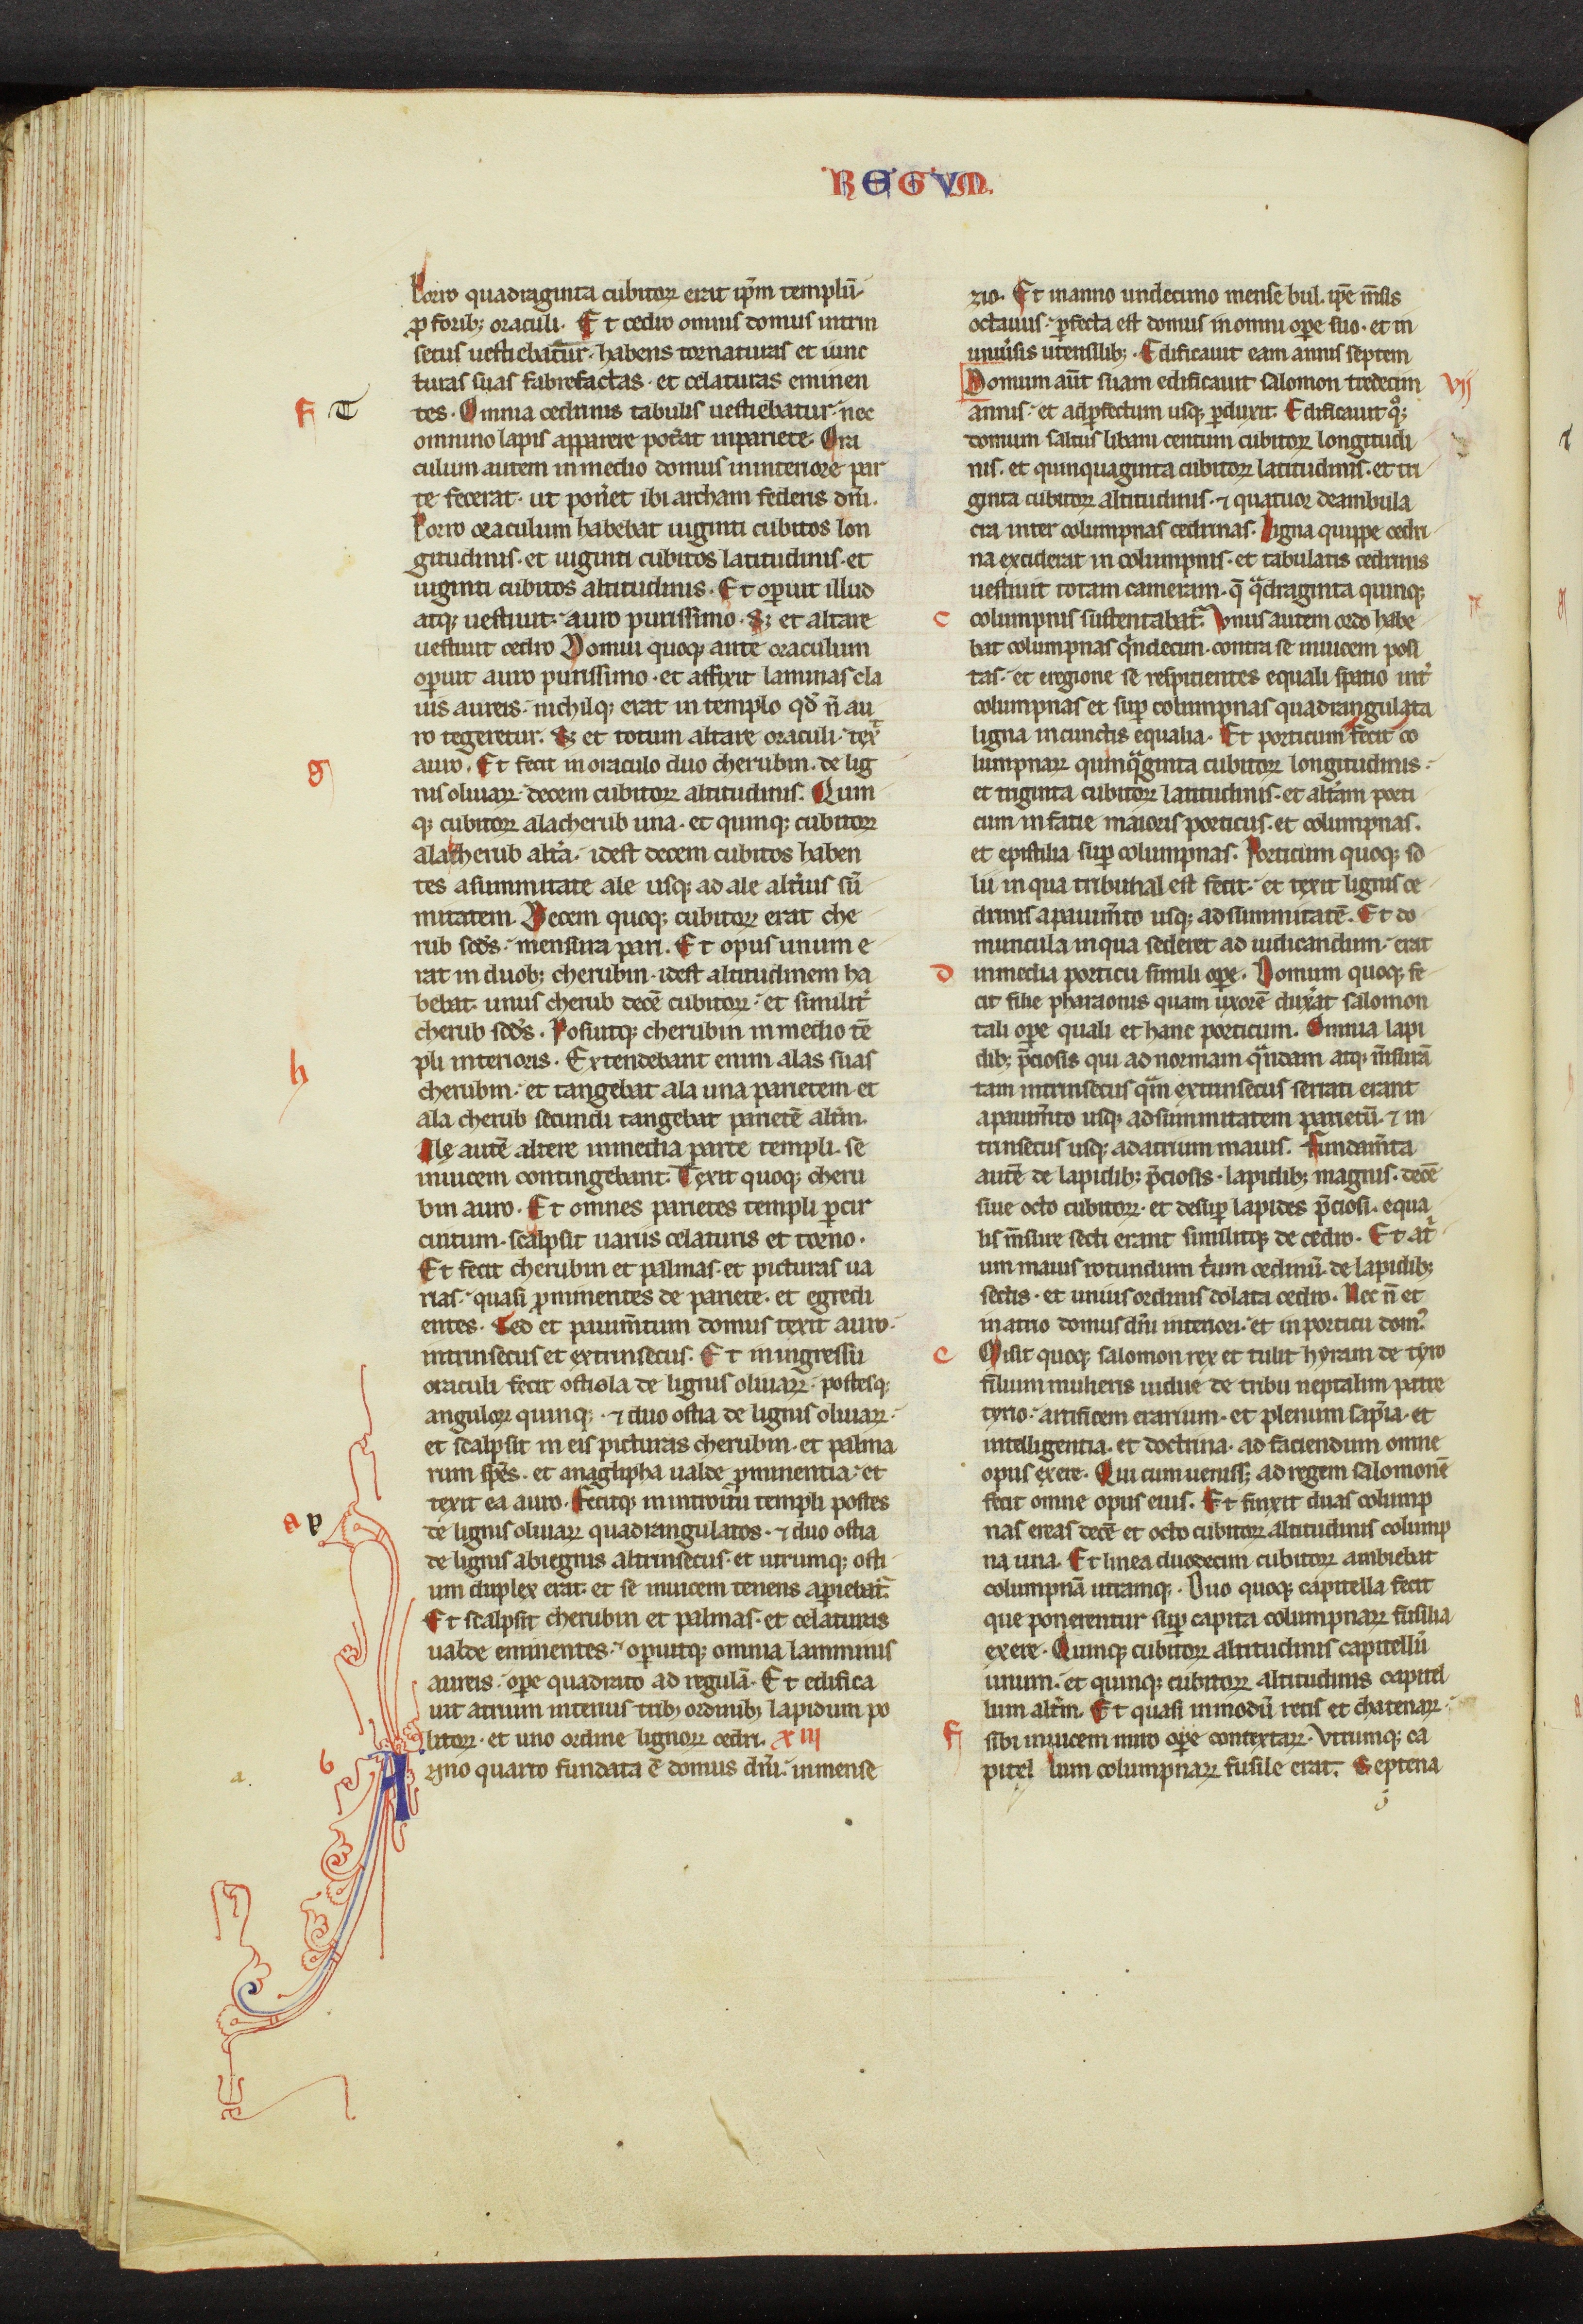 REGVM.
Porro quadraginta cubitoꝝ erat ip̄m templū.
ꝓ foribꝫ oraculi. Et cedro omnis domus intrin
secus uestiebatur. habens tornaturas et iunc
turas suas fabrefactas. et celaturas eminen
f T
tes. Omnia cedrinis tabulis uestiebatur. nec
omnino lapis apparere pot̉at inpariete. Ora
culum autem inmedio domus ininteriore par
te fecerat. ut pon̉et ibi archam federis dn̄i.
Porro oraculum habebat uiginti cubitos lon
gitudinis. et uiginti cubitos latitudinis. et
uiginti cubitos altitudinis. Et oꝑuit illud
atqꝫ uestiuit auro purissimo. Sꝫ et altare
uestiuit cedro Domū quoqꝫ ante oraculum
oꝑuit auro purissimo. et affixit laminas cla
uis aureis. nichilqꝫ erat in templo qd̉ n̄ au
ro tegeretur. Sꝫ et totum altare oraculi. tex̉
g
auro. Et fecit in oraculo duo cherubin. de lig
nis oliuaꝝ. decem cubitoꝝ altitudinis. Quin
qꝫ cubitoꝝ ala cherub una. et quinqꝫ cubitoꝝ
ala cherub alt̉a. idest decem cubitos haben
tes asummitate ale usqꝫ ad ale alt̉ius sū
mitatem. Decem quoqꝫ cubitoꝝ erat che
rub scd̉s. mensura pari. Et opus unum e
rat in duobꝫ cherubin. idest altitudinem ha
bebat unus cherub decē cubitoꝝ. et similit̉
cherub scd̉s. Posuitqꝫ cherubin in medio tē
h
pli interioris. Extendebant enim alas suas
cherubin. et tangebat ala una parietem. et
ala cherub secundi tangebat parietē alt̉m.
Ale autē altere inmedia parte templi. se
inuicem contingebant. Texit quoqꝫ cheru
bin auro. Et omnes parietes templi ꝑcir
cuitum. scalpsit uariis celaturis et torno.
Et fecit cherubin et palmas. et picturas ua
rias. quasi ꝓminentes de pariete. et egredi
entes. Sed et pauim̄tum domus texit auro.
intrinsecus et extrinsecus. Et in ingressu
oraculi fecit ostiola de lignis oliuaꝝ. postesqꝫ
anguloꝝ quinqꝫ. ⁊ duo ostia de lignis oliuaꝝ.
et scalpsit in eis picturas cherubin. et palma
rum sp̄es. et anaglipha ualde ꝓminentia. et
texit ea auro. Fecitqꝫ in introitū templi postes
a p
de lignis oliuaꝝ quadrangulatos. ⁊ duo ostia
de lignis abiegnis altrinsecus. et utrumqꝫ osti
um duplex erat. et se inuicem tenens aꝑiebat̉.
Et scalpsit cherubin et palmas. et celaturas
ualde eminentes. oꝑuitqꝫ omnia lamminis
aureis. oꝑe quadrato ad regulā. Et edifica
uit atrium interius tribꝫ ordinibꝫ lapidum po
litoꝝ. et uno ordine lignoꝝ cedri. xiii
b
a.
Anno quarto fundata ē domus dn̄i. inmense
zio. Et inanno undecimo mense bul. ip̄e m̄sis
octauus. ꝑfecta est domus in omni oꝑe suo. et in
uniủsis utensilibꝫ. Edificauit eam annis septem
Domum aūt suam edificauit salomon tredecim vij
annis. et adꝑfectum usqꝫ ꝑduxit. Edificauit qͦꝫ
domum saltus libani centum cubitoꝝ longitudi
nis. et quinquaginta cubitoꝝ latitudinis. et tri
ginta cubitoꝝ altitudinis. ⁊ quatuor deambula
cra inter columpnas cedrinas. Ligna quippe cedri
na exciderat in columpnis. et tabulatis cedrinis
uestiuit totam cameram. q̄ qͣdraginta quinqꝫ
c
columpnis sustentabat̉. Vnus autem ordo habe
bat columpnas qͥndecim. contra se inuicem posi
tas. et eregione se respicientes equali spatio int̉
columpnas et suꝑ columpnas quadrangulata
ligna incunctis equalia. Et porticum fecit co
lumpnaꝝ quinqͣginta cubitoꝝ longitudinis.
et triginta cubitoꝝ latitudinis. et alt̉am porti
cum infatie maioris porticus. et columpnas.
et epistilia suꝑ columpnas. Porticum quoqꝫ so
lii in qua tribunal est fecit. et texit lignis ce
drinis apauim̄to usqꝫ adsummitatē. Et do
muncula inqua sederet ad iudicandum. erat
d
inmedia porticu simili oꝑe. Domum quoqꝫ fe
cit filie pharaonis quam uxorē dux̉at salomon
tali oꝑe quali et hanc porticum. Omnia lapi
dibꝫ p̄ciosis qui ad normam qͣndam atqꝫ m̄surā
tam intrinsecus qͣm extrinsecus serrati erant
apauim̄to usqꝫ adsummitatem parietū. ⁊ in
trinsecus usqꝫ adatrium maius. Fundam̄ta
autē de lapidibꝫ p̄ciosis. lapidibꝫ magnis. decē
siue octo cubitoꝝ. et desuꝑ lapides p̄ciosi. equa
lis m̄sure secti erant similitqꝫ de cedro. Et atͥ
um maius rotundum t̉um ordinū de lapidibꝫ
sectis. et unius ordinis dolata cedro. Nec n̄ et
inatrio domus dn̄i interiori. et inporticu dom̉.
e
Misit quoqꝫ salomon rex et tulit hyram de tyro
filium mulieris uidue de tribu neptalim patre
tyrio. artificem erarium. et plenum sap̄ia. et
intelligentia. et doctrina. ad faciendum omne
opus exere. Qui cum uenissꝫ ad regem salomonē
fecit omne opus eius. Et finxit duas colump
nas ereas decē et octo cubitoꝝ altitudinis colump
na una. Et linea duodecim cubitoꝝ ambiebat
columpnā utramqꝫ. Duo quoqꝫ capitella fecit
que ponerentur suꝑ capita columpnaꝝ fusilia
exere. Quinqꝫ cubitoꝝ altitudinis capitellū
unum. et quinqꝫ cubitoꝝ altitudinis capitel
lum alt̉m. Et quasi inmodū retis et chatenaꝝ.
f
sibi inuicem miro oꝑe contextaꝝ. Vtrumqꝫ ca
pitel lum columpnaꝝ fusile erat. Septena